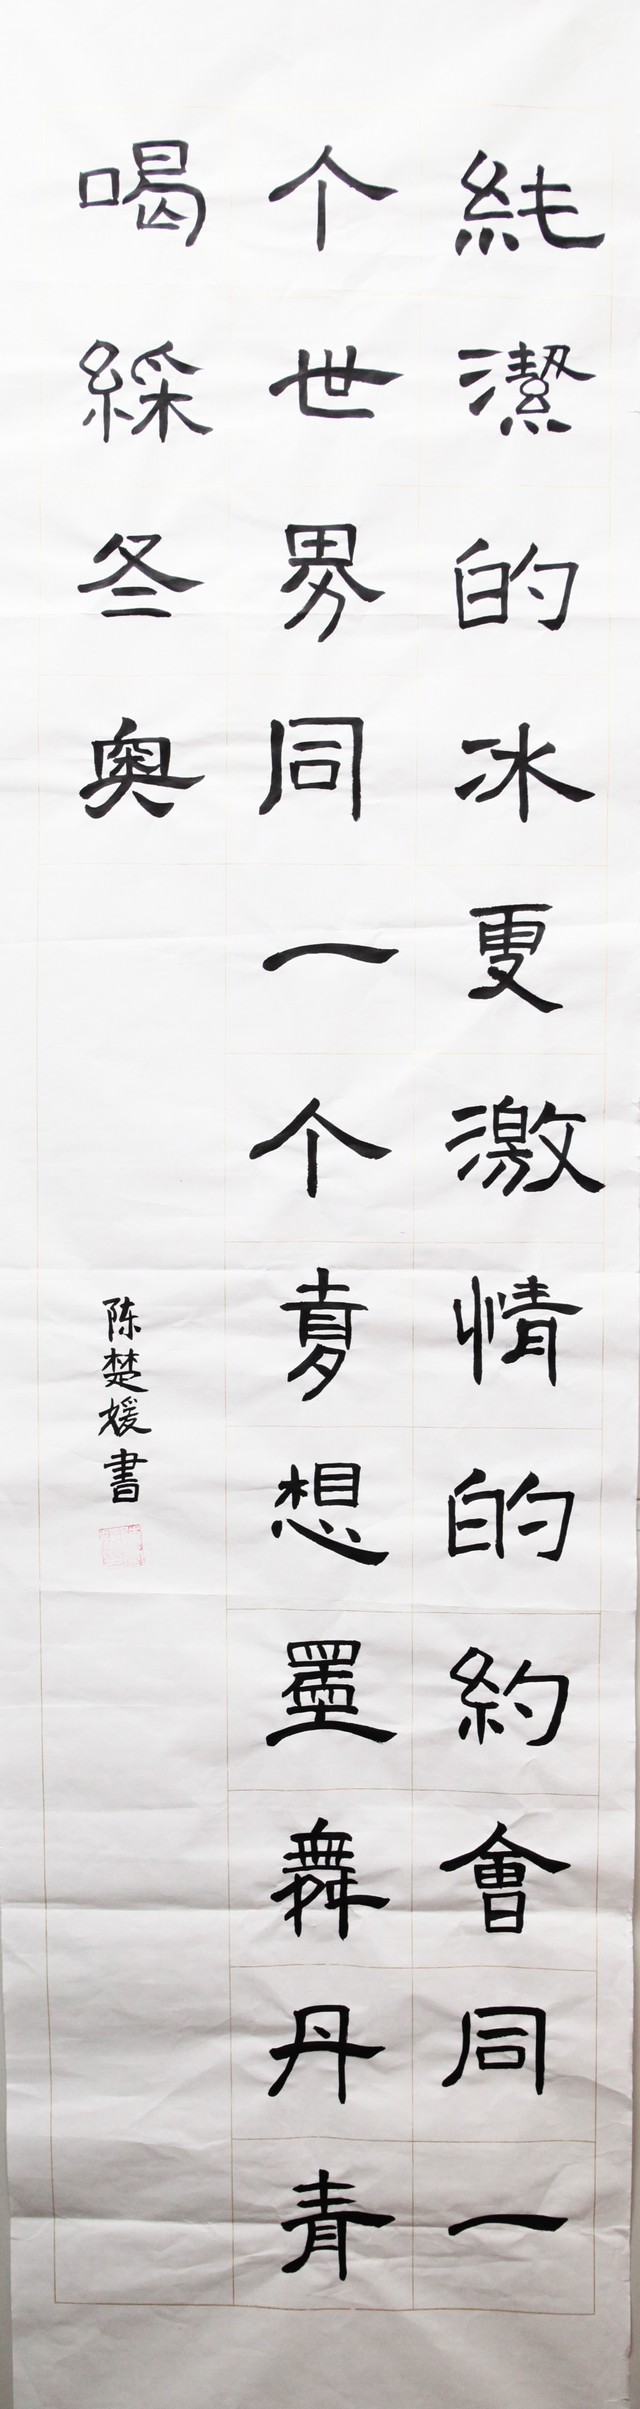 純潔的冰更激情的約會同一
个世界同一个夢想墨舞丹青
喝綵冬奥
陈楚媛書